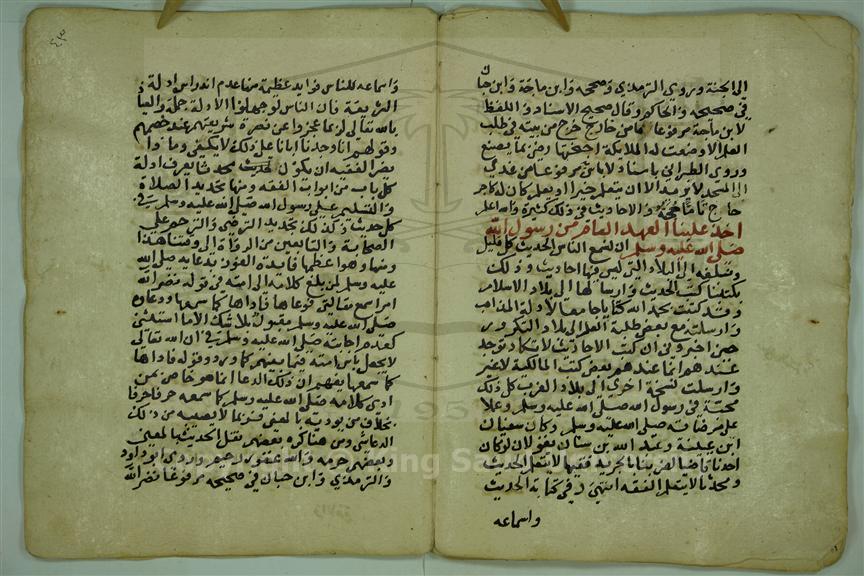 الى الجنة وروى الترمذي وصححه وابن ماجة وابن حبان
في صحيحه والحاكم وقال صحيح الاسناد واللفظ
لابن ماجة مرفوعا ما من خارج خرج من بيته في طلب
العلم الا وضعت له الملايكة اجنحتها رضى بما يصنع
وروى الطبراني باسناد لا باس به مرفوعا من غدى
الى المسجد لا يريد الا ان يتعلم خيرا او يعلمه كان له كاجر
حاج تاما حجه والاحاديث في ذلك كثيرة والله اعلم
اخذ علينا العهد العام من رسول الله
صلى الله عليه وسلم ان نسمع الناس الحديث كل قليل
ونبلغه الى البلاد التي ليس فيها احاديث وذلك
بكتبنا كتب الحديث وارسالها الى بلاد الاسلام
وقد كتبت بحمد الله كتابا جامعا لادلة المذاهب
وارسلته مع بعض طلبة العلم الى بلاد التكرور
حين اخبروني ان كتب الاحاديث لا تكاد توجد
عندهم انما عندهم بعض كتب المالكية لا غير
وارسلت نسخة اخرى الى بلاد الغرب كل ذلك
محبة في رسول الله صلى الله عليه وسلم وعملا
على مرضاته صلى الله عليه وسلم وكان سفيان
ابن عيينة وعبد الله بن سنان يقولان لو كان
احدنا قاضيا لضربنا بالجريد فقيها لا يتعلم الحديث
ومحدثا لا يتعلم الفقه انتهى وفي كتابة الحديث
واسماعه
٤٣
واسماعه للناس فوايد عظيمة منها عدم اندراس ادلة
الشريعة فان الناس لو جهلوا الادلة جملة والعياذ
بالله تعالى لربما عجزوا عن نصرة شريعتهم عند خصمهم
وقولهم انا وجدنا اباءنا على ذلك لا يكفي وماذا
يضر الفقيه ان يكون محدثا يعرف ادلة
كل باب من ابواب الفقه ومنها تجديد الصلاة
والتسليم على رسول الله صلى الله عليه وسلم في
كل حديث وكذلك تجديد الترضي والترحم على
الصحابة والتابعين من الرواة الى وقتنا هذا
ومنها وهو اعظمها فايدة الفوز بدعايه صلى الله
عليه وسلم لمن بلغ كلامه الى امته في قوله نضر الله
امرا سمع مقالتي فوعاها فاداها كما سمعها ودعاوه
صلى الله عليه وسلم مقبول بلا شك الا ما استثنى
كعدم اجابته صلى الله عليه وسلم في ان الله تعالى
لا يجعل باس امته فيما بينهم كما ورد وقوله فاداها
كما سمعها يفهم ان ذلك الدعا انما هو خاص بمن
ادى كلامه صلى الله عليه وسلم كما سمعه حرفا حرفا
بخلاف من يوديه بالمعنى فربما لا يصيبه من ذلك
الدعا شي ومن هنا كره بعضهم نقل الحديث بالمعنى
وبعضهم حرمه والله غفور رحيم وروى ابو داود
والترمذي وابن حبان في صحيحه مرفوعا نضر الله